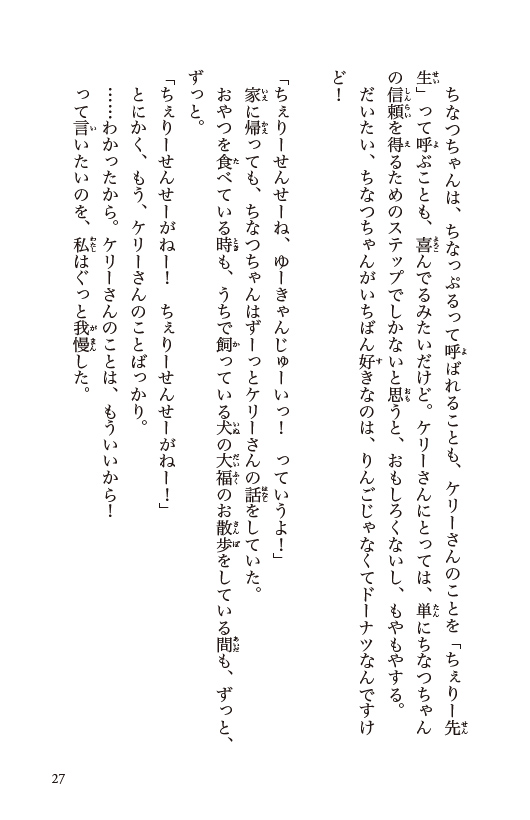 ちなつちゃんは、ちなっぷるって呼ばれることも、ケリーさんのことを「ちぇりー先
生」って呼ぶことも、喜んでるみたいだけど。ケリーさんにとっては、単にちなつちゃん
の信頼を得るためのステップでしかないと思うと、おもしろくないし、もやもやする。
だいたい、ちなつちゃんがいちばん好きなのは、りんごじゃなくてドーナツなんですけ
ど！
「ちぇりーせんせーね、ゆーきゃんじゅーいっ！　っていうよ！」
家に帰っても、ちなつちゃんはずーっとケリーさんの話をしていた。
おやつを食べている時も、うちで飼っている犬の大福のお散歩をしている間も、ずっと、
ずっと。
「ちぇりーせんせーがねー！　ちぇりーせんせーがねー！」
とにかく、もう、ケリーさんのことばっかり。
……わかったから。ケリーさんのことは、もういいから！
って言いたいのを、私はぐっと我慢した。
27